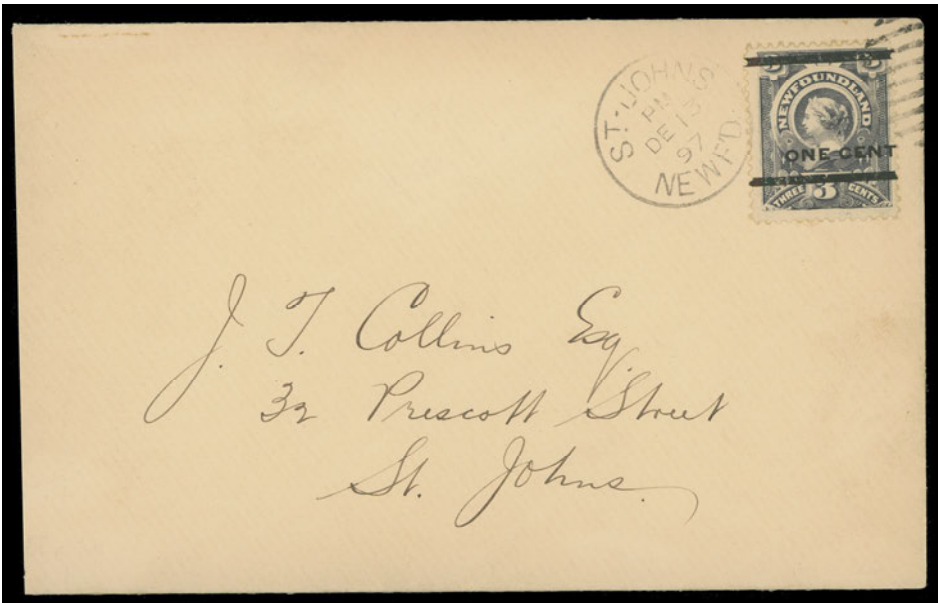 ST. JOHN'S
PM
DE 13
97
NEWF'D.
NEWFOUNDLAND
ONE CENT
THREE 3 CENTS
J. T. Collins Esq.
32 Prescott Street
St. Johns.